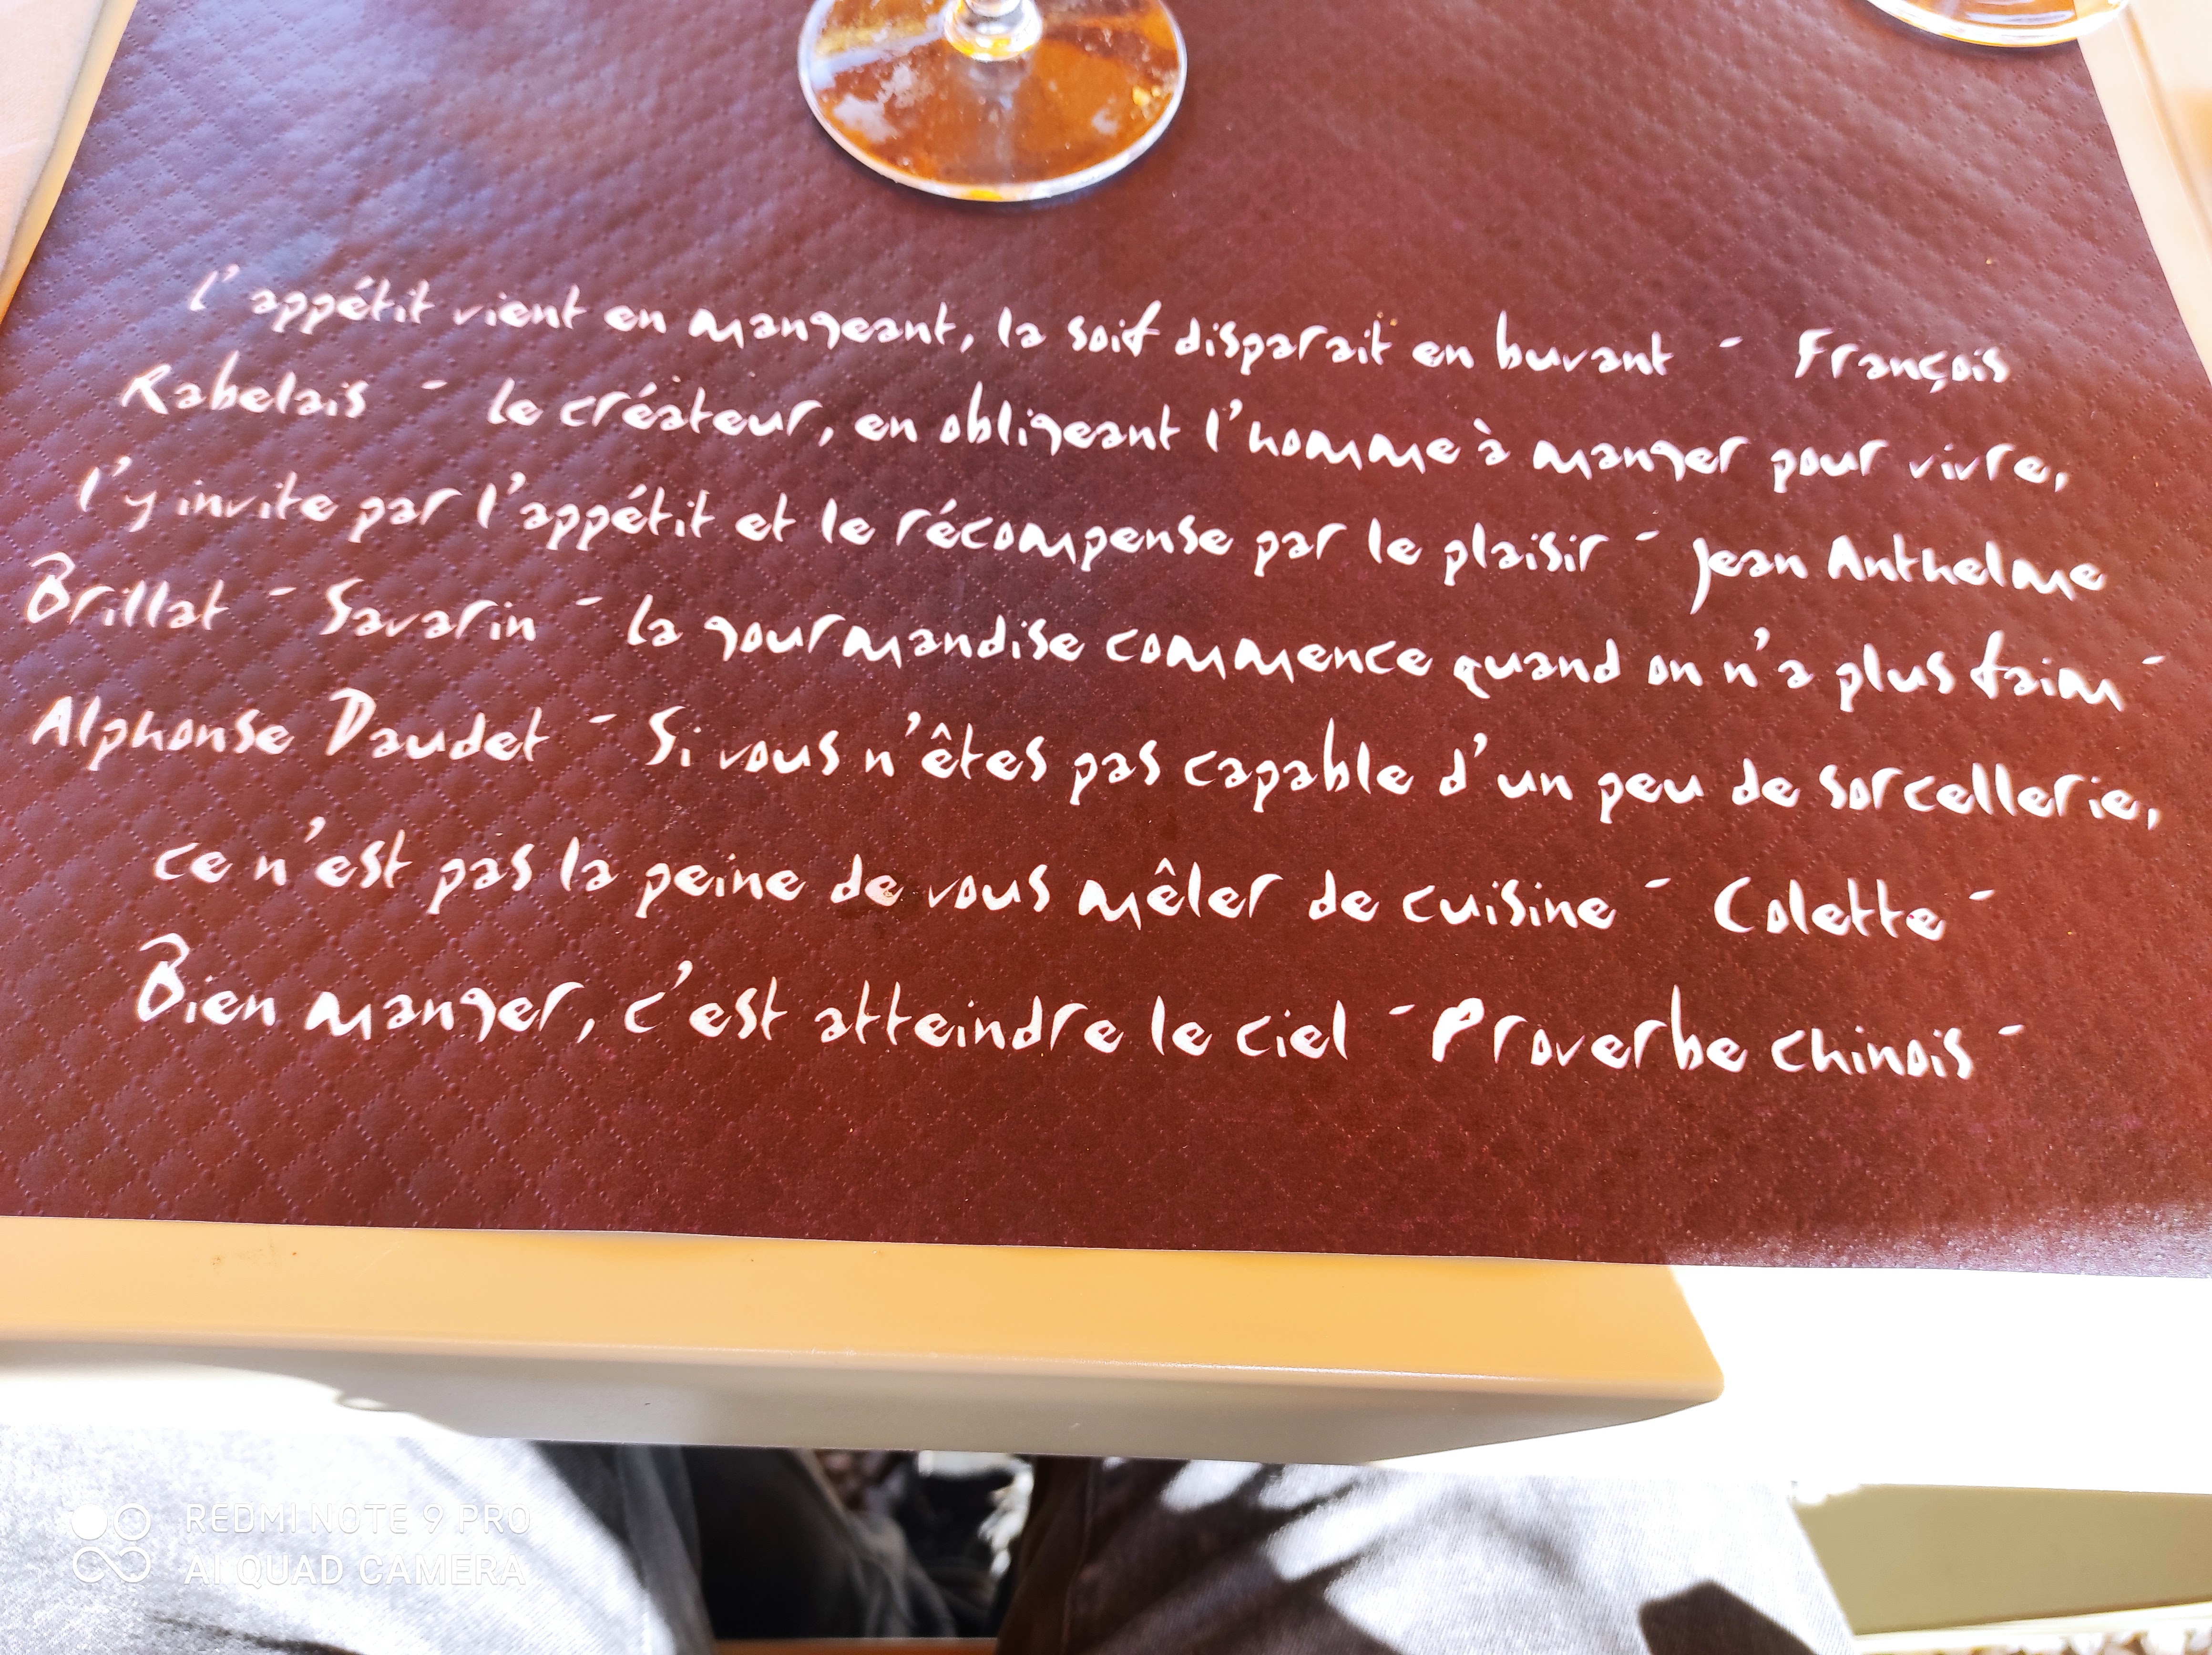 l'appétit vient en mangeant, la soif disparait en buvant - François
Rabelais - le créateur, en obligeant l'homme à manger pour vivre,
l'y invite par l'appétit et le récompense par le plaisir - Jean Anthelme
Brillat - Savarin - la gourmandise commence quand on n'a plus faim -
Alphonse Daudet - Si vous n'êtes pas capable d'un peu de sorcellerie,
ce n'est pas la peine de vous mêler de cuisine - Colette -
Bien manger, c'est atteindre le ciel - Proverbe chinois -
REDMI NOTE 9 PRO
AI QUAD CAMERA